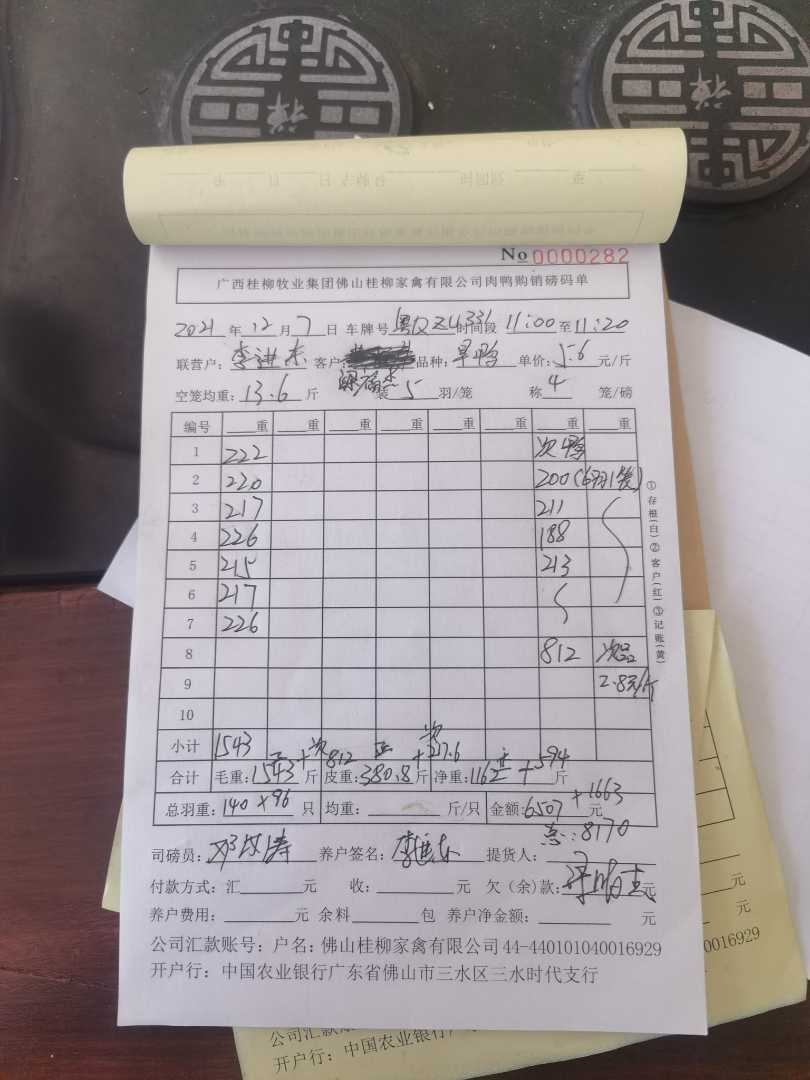 No 0000282
广西桂柳牧业集团佛山桂柳家禽有限公司肉鸭购销磅码单
2021年12月7日 车牌号 粤QZU331 时间段 11:00至11:20
联营户：李进东 客户： 品种：旱鸭 单价：5.6元/斤
空笼均重：13.6斤 装5羽/笼 称4笼/磅
编号 重 重 重 重 重 重 重 重
1 222 次鸭
2 220 200(6羽1笼)
3 217 211
4 226 188
5 215 213
6 217
7 226
8 812 次品
9 2.8元/斤
10
小计 1543
合计 毛重：正1543+次812斤 皮重：正380.8+次217.6斤 净重：1162正+594斤
总羽重：140×96只 均重： 斤/只 金额：6507+1663元
总：8170
司磅员： 养户签名：李进东 提货人：
付款方式：汇 元 收： 元 欠（余）款： 元
养户费用： 元 余料 包 养户净金额： 元
公司汇款账号：户名：佛山桂柳家禽有限公司44-440101040016929
开户行：中国农业银行广东省佛山市三水区三水时代支行
①存根(白)②客户(红)③记账(黄)
元
元
0016929
公司汇款
开户行：中国农业银行广